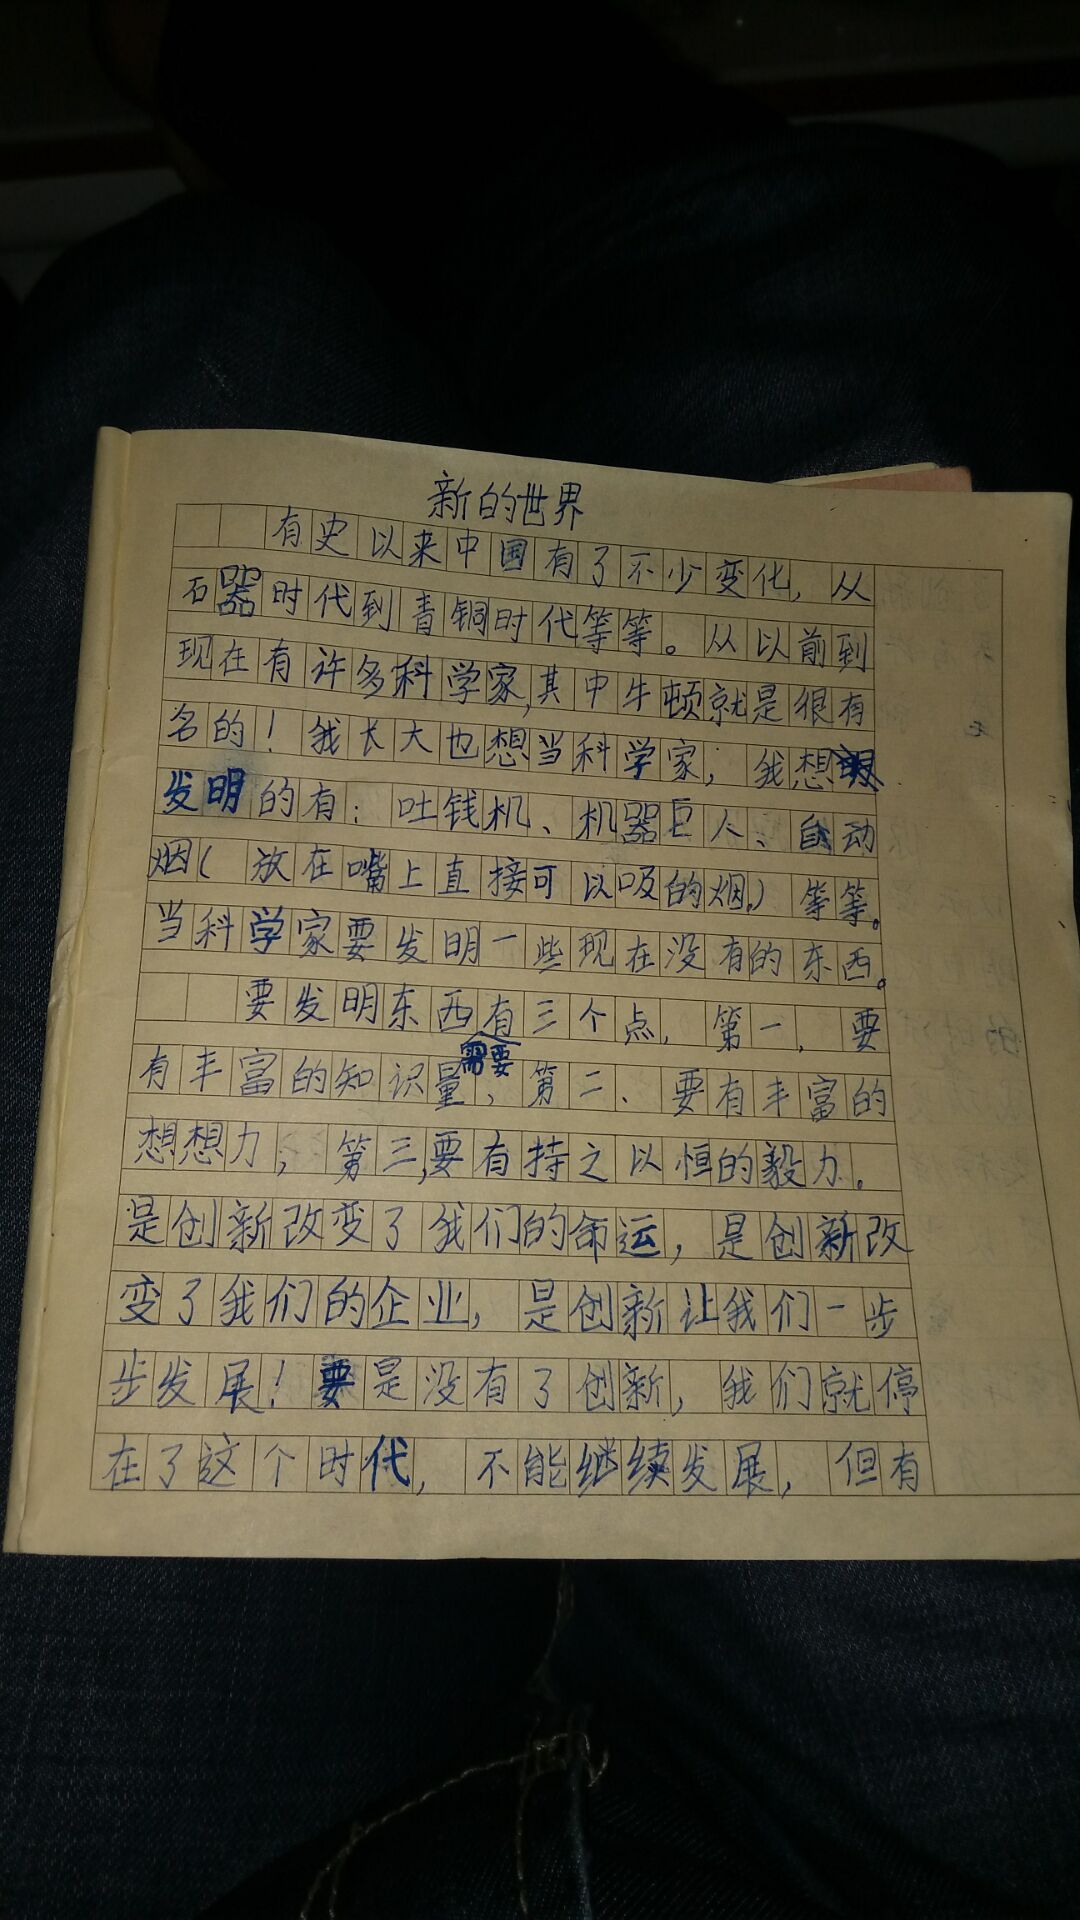 新的世界
有史以来中国有了不少变化,从
石器时代到青铜时代等等。从以前到
现在有许多科学家,其中牛顿就是很有
名的!我长大也想当科学家,我想
发明的有:吐钱机、机器巨人、自动
烟(放在嘴上直接可以吸的烟)等等。
当科学家要发明一些现在没有的东西。
要发明东西有三个点,第一,要
需要
有丰富的知识量,第二、要有丰富的
想想力,第三,要有持之以恒的毅力。
是创新改变了我们的命运,是创新改
变了我们的企业,是创新让我们一步
步发展!要是没有了创新,我们就停
在了这个时代,不能继续发展,但有